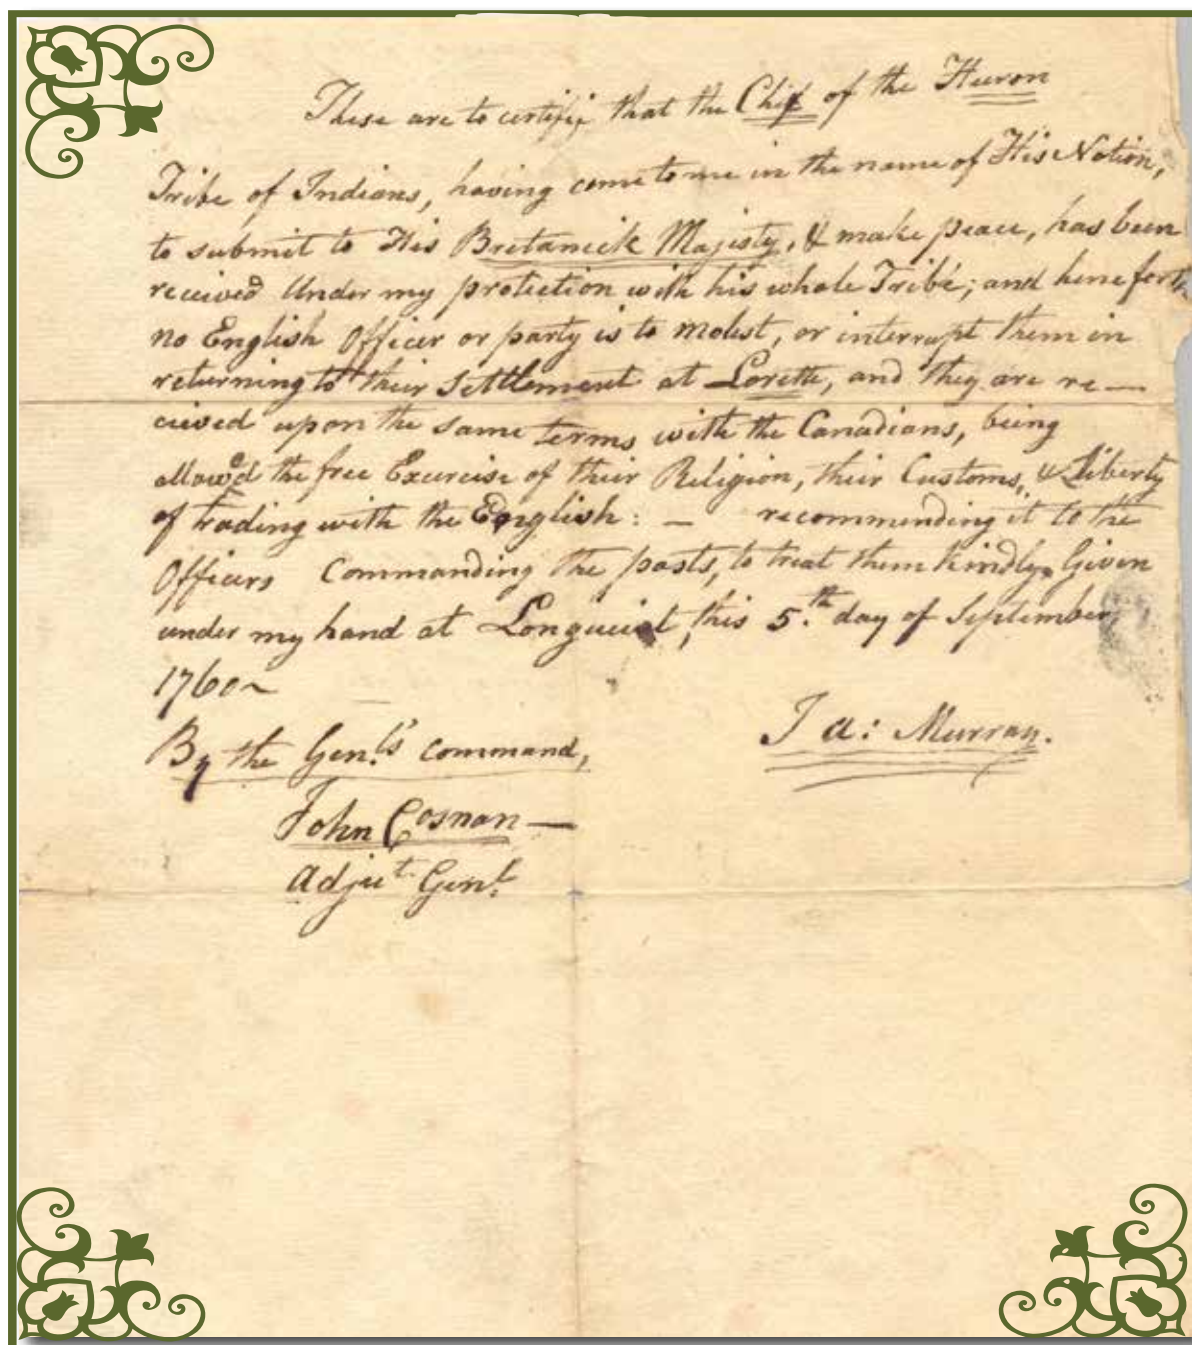 These are to certify that the Chief of the Huron
Tribe of Indians, having come to me in the name of His Nation,
to submit to His Bretanick Majesty, & make peace, has been
received Under my protection with his whole Tribe; and henceforth
no English Officer or party is to molest, or interrupt them in
returning to their Settlement at Lorette, and they are re—
cieved upon the same terms with the Canadians, being
allowed the free Exercise of their Religion, their Customs, & Liberty
of trading with the English: — recommending it to the
Officers Commanding the posts, to treat them kindly. Given
under my hand at Longueil, this 5th day of September,
1760~
By the Genls' command,
Ja: Murray.
John Cosnan —
Adjut Genl